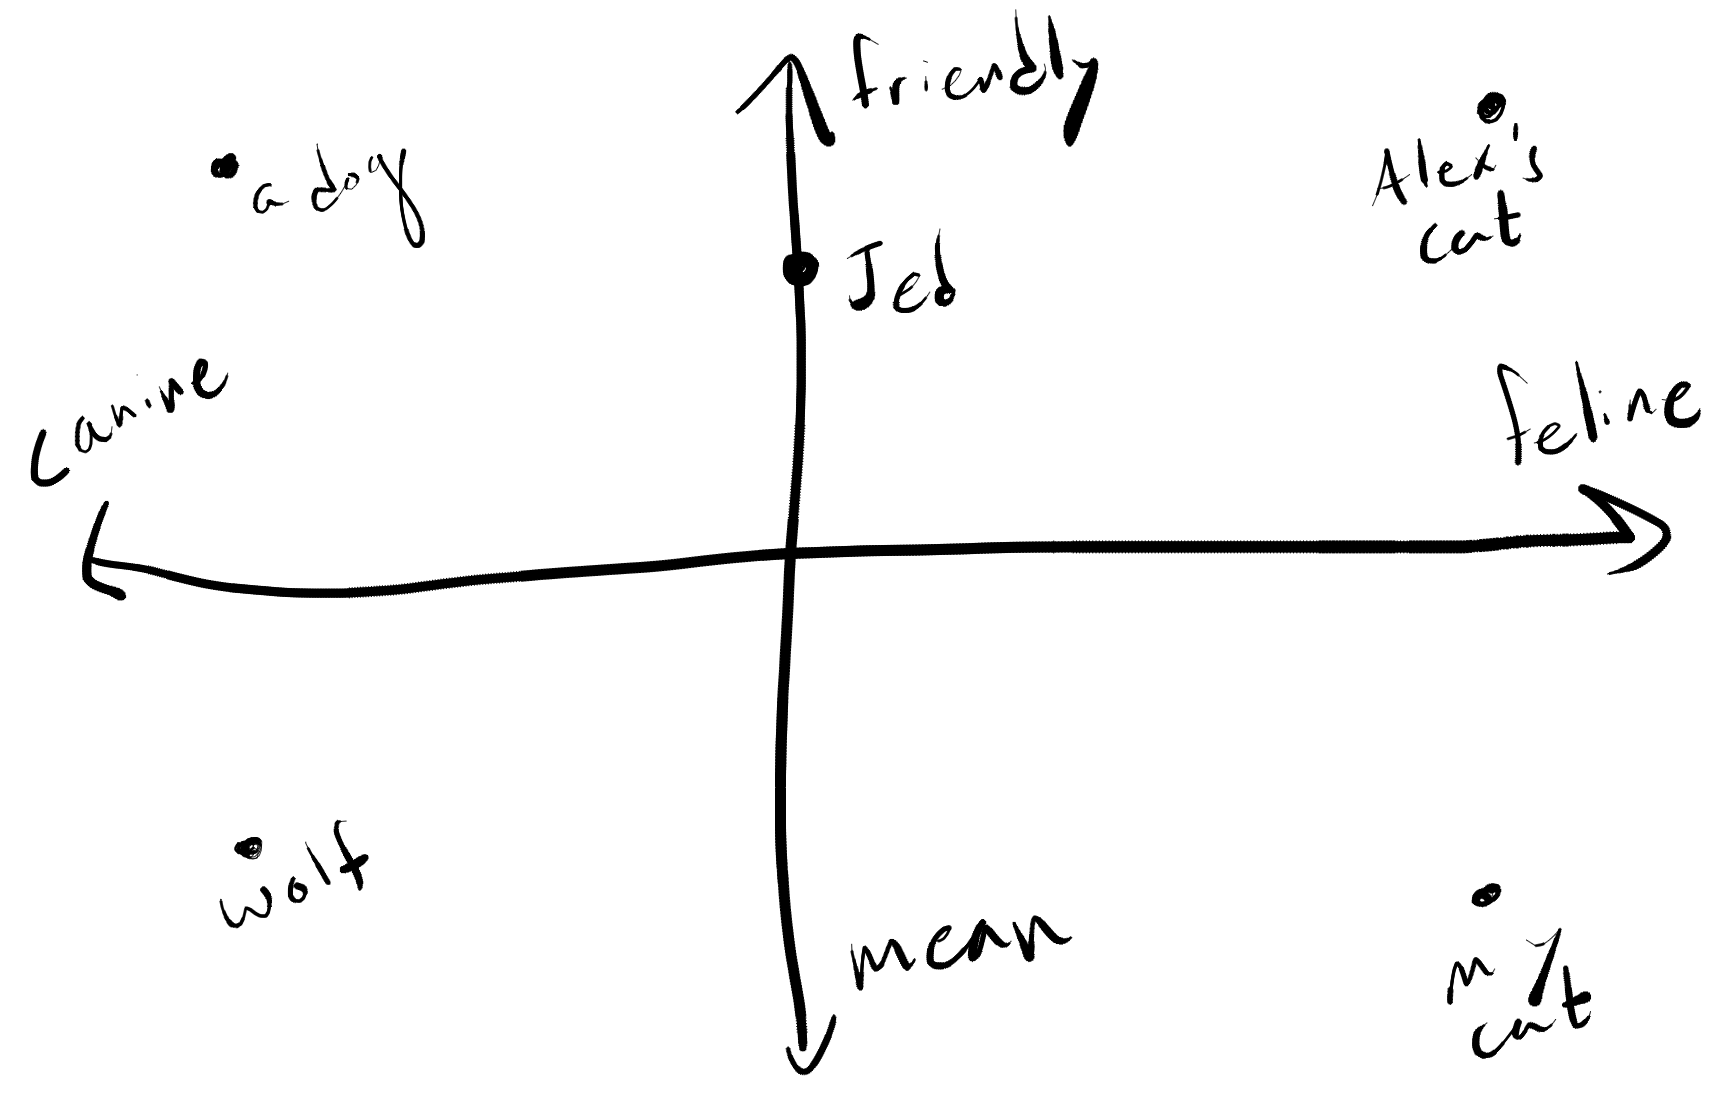 friendly
a dog
Alex's
cat
Jed
canine
feline
wolf
mean
my
cat